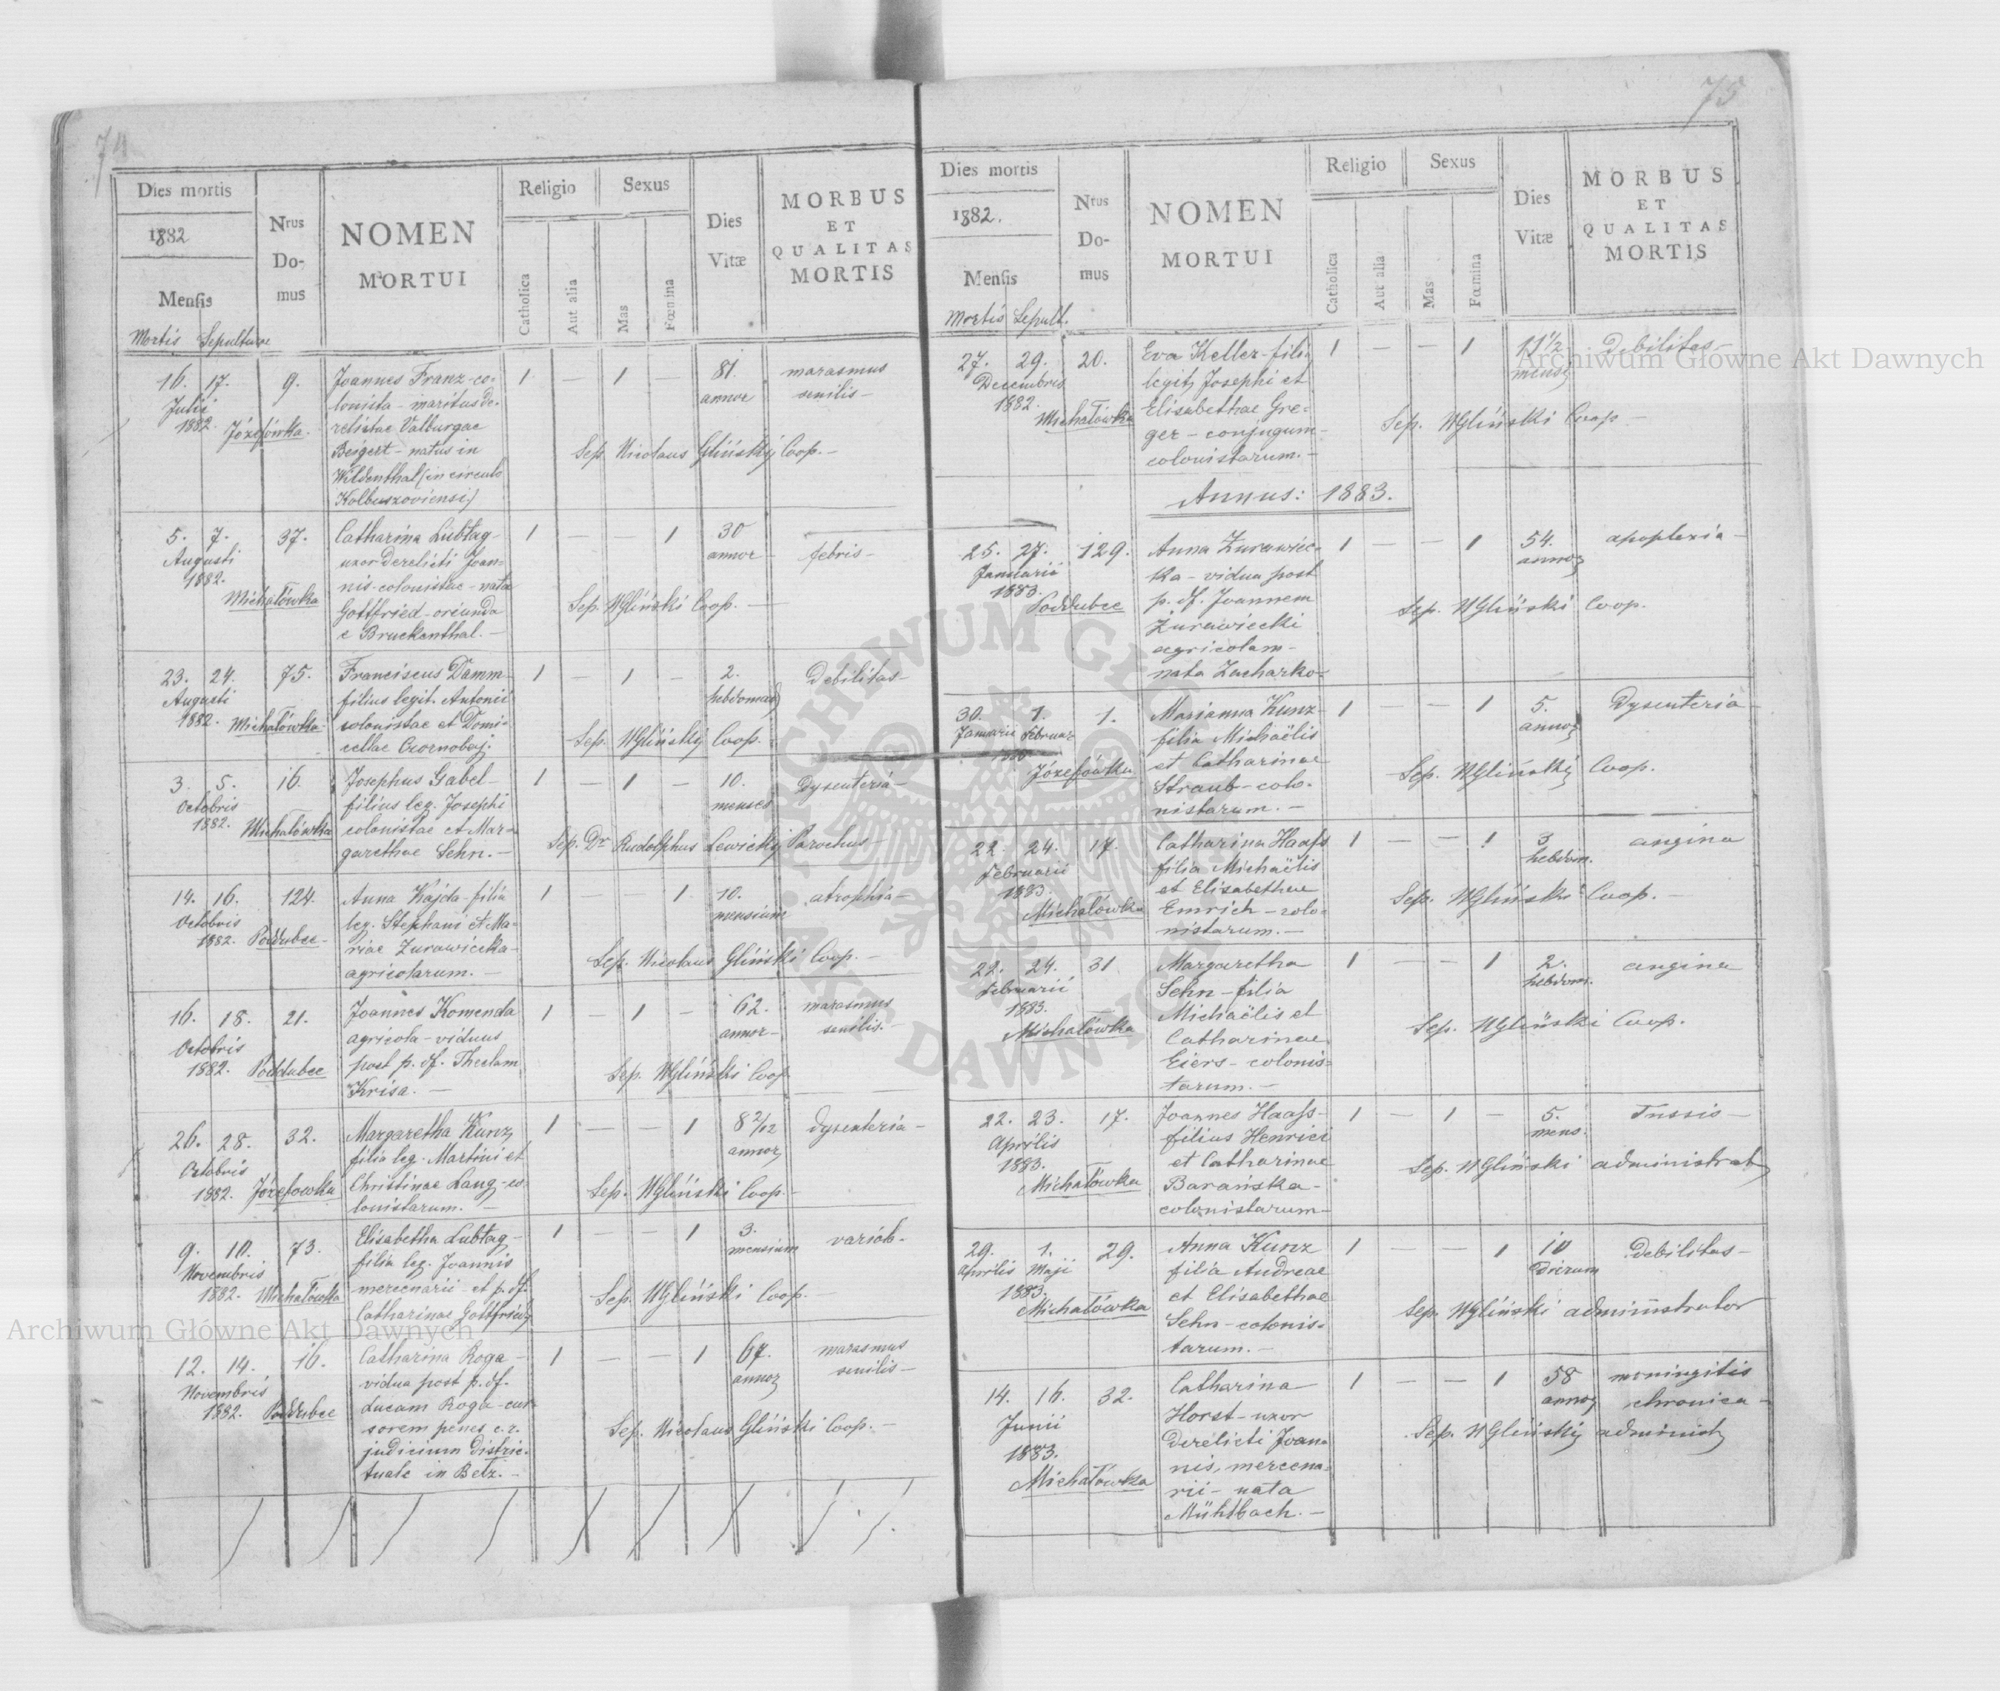 74
Dies mortis
1882
Mensis
Mortis Sepulturae
Nrus
Do-
mus
NOMEN
MORTUI
Religio
Catholica
Aut alia
Sexus
Mas
Fœmina
Dies
Vitæ
MORBUS
ET
QUALITAS
MORTIS
16. 17. 9. Joannes Franz-co- 1 — 1 — 81. marasmus
Julii lonista - maritus de- annor senilis —
1882. Józefówka. relictae Valburgae
Beigert - natus in Sep. Nicolaus Gliński Coop. —
Wildenthal (in circulo
Kolbuszoviensi)
5. 7. 37. Catharina Lubtag- 1 — — 1 30 febris —
Augusti uxor Derelicti Joan- annor
1882. nis - colonistae - nata
Michałówka Gottfried - oriunda Sep. NGliński Coop. —
e Bruckenthal. —
23. 24. 75. Franciscus Damm- 1 — 1 — 2. Debilitas —
Augusti filius legit. Antonii hebdomad
1882. Michałówka colonistae et Domi- Sep. NGliński Coop. —
cellae Czornobaj.
3. 5. 16. Josephus Gabel- 1 — 1 — 10. Dysenteria —
Octobris filius leg. Josephi menses
1882. Michałówka colonistae et Mar-
garethae Sehn. — Sep. Dr Rudolphus Lewicki Parochus —
14. 16. 124. Anna Kajda - filia 1 — — 1 10. atrophia —
Octobris leg. Stephani et Ma- mensium
1882. Poddubce - riae Zurawiecka -
agricolarum. — Sep. Nicolaus Gliński Coop. —
16. 18. 21. Joannes Komenda 1 — 1 — 62. marasmus
Octobris agricola - viduus annor - senilis. —
1882. Poddubce post p. df. Theclam
Krisa. — Sep. NGliński Coop
26. 28. 32. Margaretha Kunz 1 — — 1 8 2/12 dysenteria —
Octobris filia leg. Martini et annor
1882. Józefowka Christinae Lang - co-
lonistarum. — Sep. NGliński Coop. —
9. 10. 73. Elisabetha Lubtag - 1 — — 1 3. variol. -
Novembris filia leg. Joannis mensium
1882. Michałówka mercenarii - et p. df.
Catharinae Gottfried Sep. NGliński Coop. —
12. 14. 16. Catharina Roga - 1 — — 1 67. marasmus
Novembris vidua post p. df. annor senilis —
1882. Poddubce Lucam Roga - cur-
sorem penes c. r. Sep. Nicolaus Gliński Coop. —
judicium distric-
tuale in Betz. —
75
Dies mortis
1882.
Mensis
Mortis Sepult.
Nrus
Do-
mus
NOMEN
MORTUI
Religio
Catholica
Aut alia
Sexus
Mas
Fœmina
Dies
Vitæ
MORBUS
ET
QUALITAS
MORTIS
27. 29. 20. Eva Keller - filia 1 — — 1 11 1/2 Debilitas —
Decembris legit. Josephi et mens
1882. Michałówka Elisabethae Gre-
ger - conjugum - Sep. NGliński Coop —
colonistarum. —
Annus: 1883.
25. 27. 129. Anna Zurawiec- 1 — — 1 54. apoplexia —
Januarii ka - vidua post annor
1883. p. df. Joannem
Poddubce Zurawiecki Sep. NGliński Coop.
agricolam -
nata Zacharko -
30. 1. 1. Marianna Kunz - 1 — — 1 5. Dysenteria —
Januarii Februar filia Michaëlis annor
1883 et Catharinae
Józefówka Straub - colo- Sep. NGliński Coop.
nistarum. —
22. 24. 17. Catharina Haafs 1 — — 1 3 angina
Februarii filia Michaëlis hebdom.
1883. et Elisabethae
Michałówka Emrich - colo- Sep. NGliński Coop. —
nistarum. —
22. 24. 31. Margaretha 1 — — 1 2. angina
Februarii Sehn - filia hebdom.
1883. Michaëlis et
Michałówka Catharinae Sep. NGliński Coop.
Eiers - colonis-
tarum. —
22. 23. 17. Joannes Haafs - 1 — 1 — 5. Tussis —
Aprilis filius Henrici mens.
1883. et Catharinae
Michałówka Barańska - Sep. NGliński administrat
colonistarum -
29. 1. 29. Anna Kunz 1 — — 1 10 Debilitas —
Aprilis Maji filia Andreae dierum
1883. et Elisabethae
Michałówka Sehn - colonis- Sep. NGliński administrator
tarum. —
14. 16. 32. Catharina 1 — — 1 58 meningitis
Junii Horst - uxor annor chronica —
1883. derelicti Joan-
Michałówka nis, mercena- Sep. NGliński administ
rii - nata
Mühlbach. —
Archiwum Główne Akt Dawnych
Archiwum Główne Akt Dawnych
ARCHIWUM GŁÓWNE AKT DAWNYCH